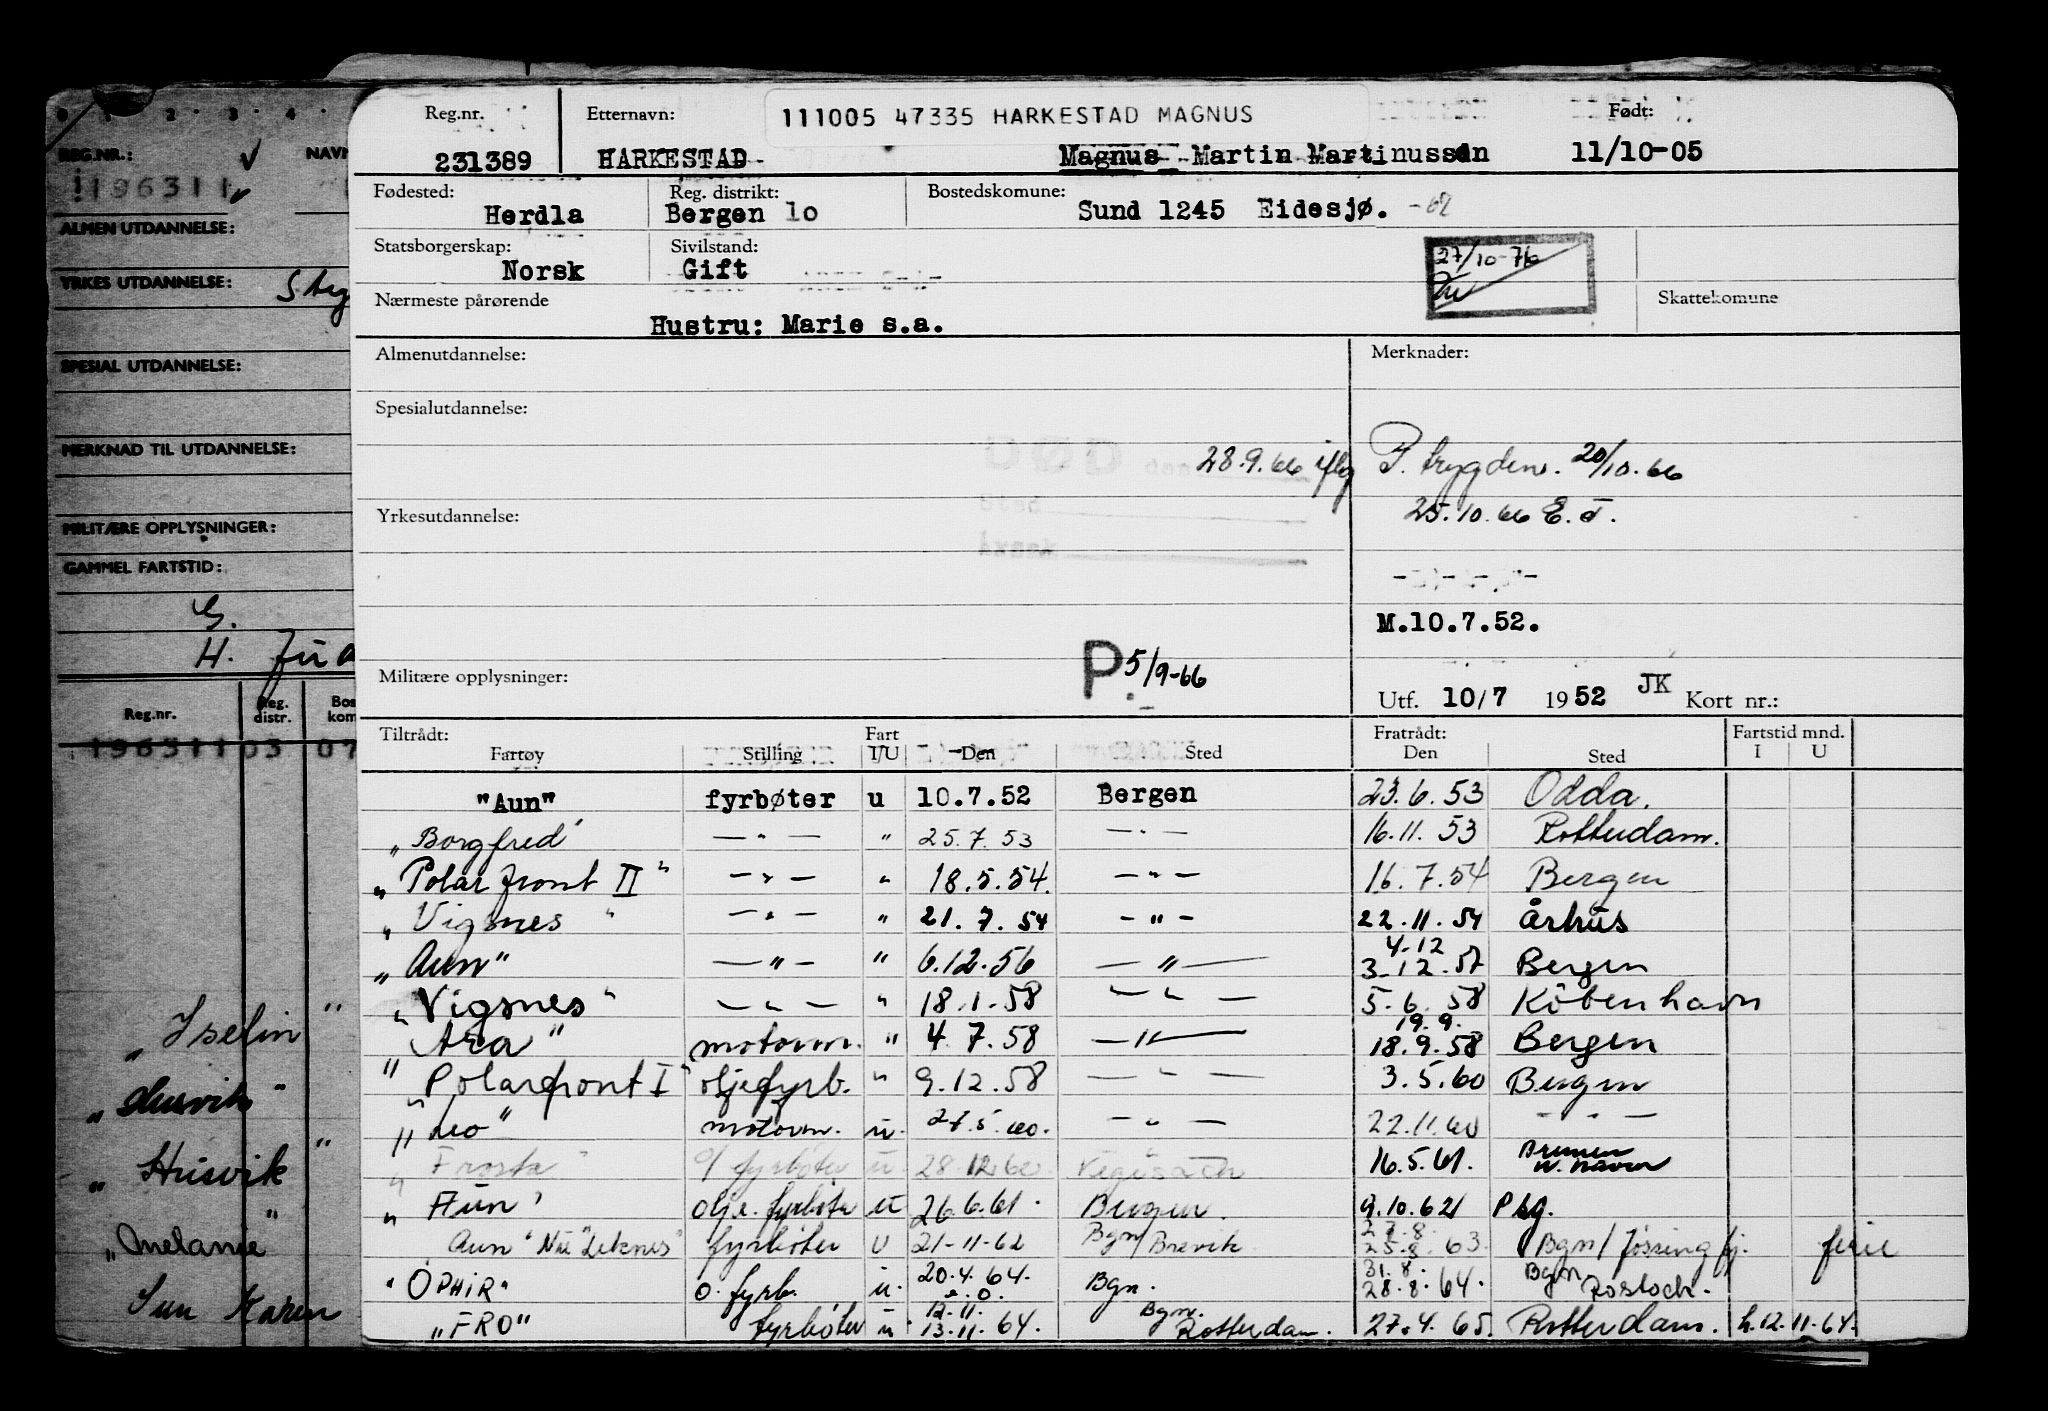 Reg.nr. Etternavn: 111005 47335 HARKESTAD MAGNUS Født:
231389 HARKESTAD Magnus Martin Martinussen 11/10-05
Fødested: Reg. distrikt: Bostedskomune:
Herdla Bergen 10 Sund 1245 Eidesjø.
Statsborgerskap: Sivilstand:
Norsk Gift 27/10-76
Nærmeste pårørende Skattekomune
Hustru: Marie s.a.
Almenutdannelse: Merknader:
Spesialutdannelse:
DØD den 28.9.66 iflg P. trygden. 20/10.66
Sted 25.10.66 E.T.
Yrkesutdannelse:
Årsak
M.10.7.52.
Militære opplysninger: P. 5/9-66
Utf. 10/7 1952 JK Kort nr.:
Tiltrådt: Fart Fratrådt: Fartstid mnd.
Fartøy Stilling I/U Den Sted Den Sted I U
"Aun" fyrbøter u 10.7.52 Bergen 23.6.53 Odda.
"Borgfred" — " — " 25.7.53 — " — 16.11.53 Rotterdam.
"Polarfront II" — " — " 18.5.54. — " — 16.7.54 Bergen
"Vigsnes" — " — " 21.7.54 — " — 22.11.54 Århus
"Aun" — " — " 6.12.56 — " — 4.12 3-12.57 Bergen
"Vigsnes" — " — " 18.1.58 — " — 5.6.58 København
"Ara" motorm. " 4.7.58 — " — 19.9. 18.9.58 Bergen
"Polarfront I" oljefyrb. " 9.12.58 — " — 3.5.60 Bergen
"Leo" motorm. u. 27.5.60. — " — 22.11.60 — " —
"Frosta" o/fyrbøter u 28.12.60 Vegesack 16.5.61. Bremen
"Aun" olje.fyrbøter u 26.6.61. Bergen. 9.10.62 Psg.
Aun "Nu "Leknes" fyrbøter U 21-11-62 Bgn/Brevik 27.8. 25.8.63. Bgn/Jøssingfj. ferie
"OPHIR" o.fyrb. u. 20.4.64. Bgn. 31.8. 28.8.64. Bgn Rostock.
"FRO" fyrbøter u 12.11. 13.11.64. Bgn. Rotterdam. 27.4.65. Rotterdam. h.12.11.64.
0 1 2 3 4
REG.NR.: NAVN
196311
ALMEN UTDANNELSE:
YRKES UTDANNELSE:
SPESIAL UTDANNELSE:
MERKNAD TIL UTDANNELSE:
MILITÆRE OPPLYSNINGER:
GAMMEL FARTSTID:
G.
H.
Reg.nr. Reg. distr. Bos kom
196311 03 07
"Iselin"
"Husvik"
"Husvik"
"Melanie"
Sun Karen